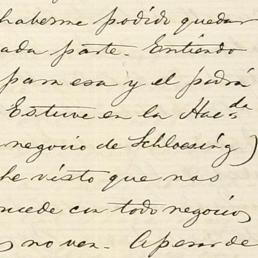 haberme podido quedar
ada parte. Entiendo
para esa y el podrá
Estuve en la Hacda
negocio de Schloesing)
he visto que nos
sucede con todo negocio,
no ven. A pesar de